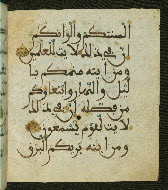 ألسنتكم وألوانكم
إن في ذلك لايت للعلمين
ومن ايته منامكم با
ليل والنهار وابتغاؤكم
من فضله إن في ذلك
لايت لقوم يسمعون
ومن ايته يريكم البرق